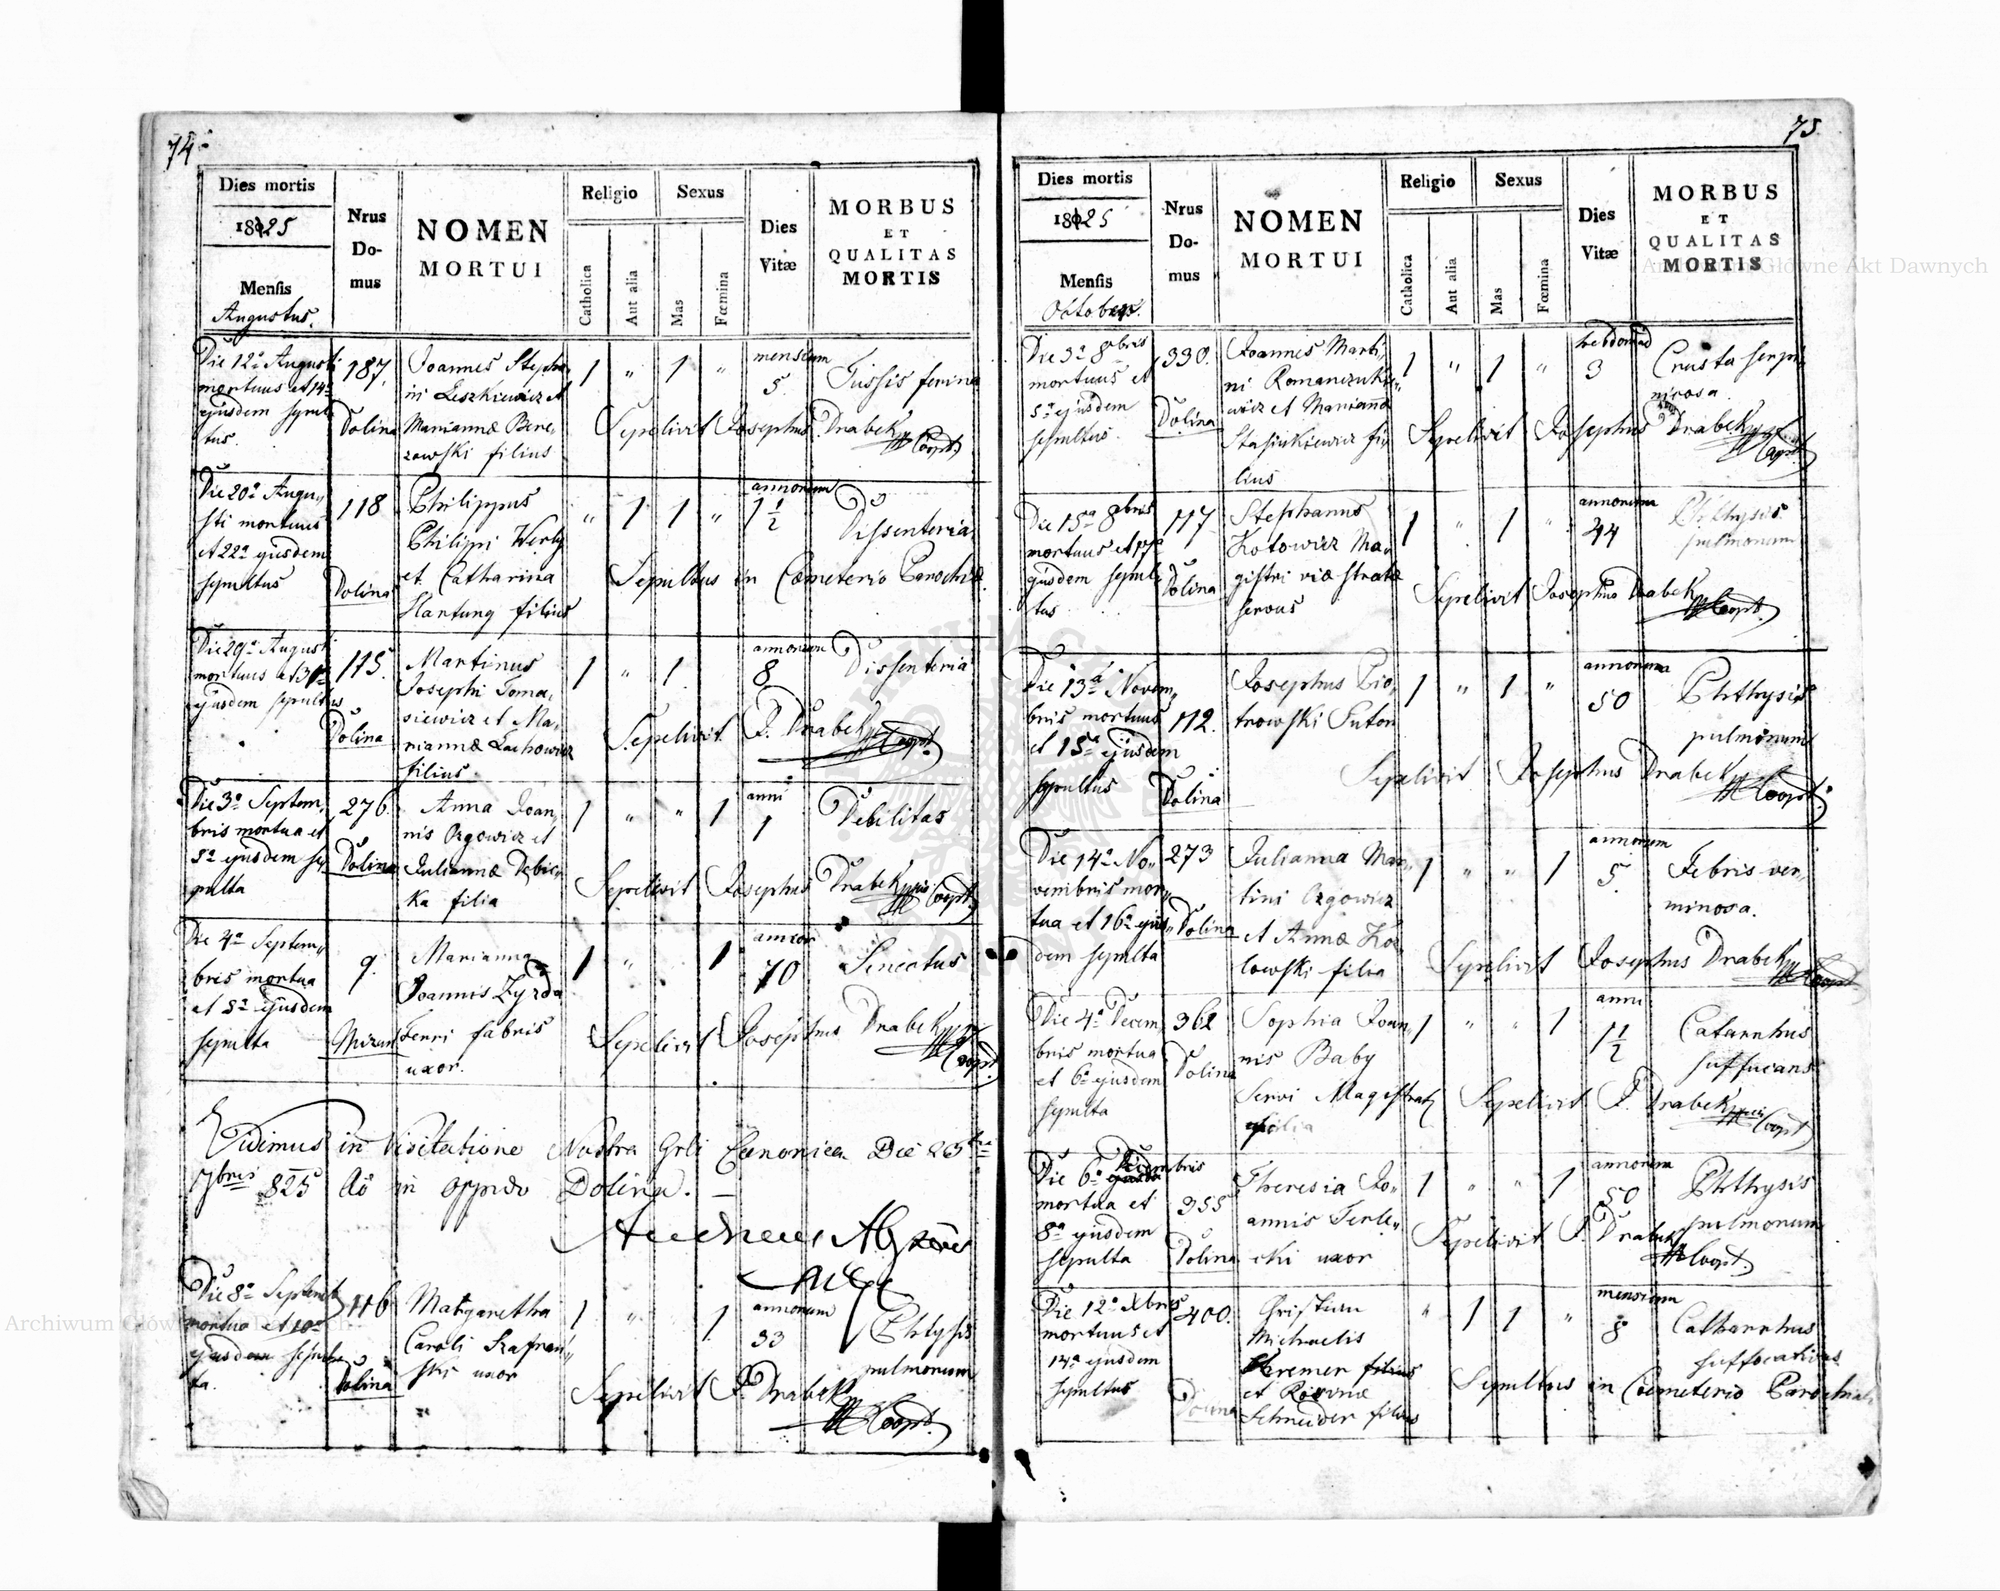 74
Dies mortis
1825
Mensis
Augustus.
Nrus
Do-
mus
NOMEN
MORTUI
Religio
Catholica
Aut alia
Sexus
Mas
Fœmina
Dies
Vitæ
MORBUS
ET
QUALITAS
MORTIS
Die 12a Augusti
mortuus et 14a
ejusdem sepul
tus.
187.
Dolina
Joannes Stepha
ni Leszkiewicz et
Mariannæ Bere
zowski filius
1 " 1 "
mensium
5.
Tussis ferina
Sepelivit Josephus Drabek Coop.
Die 20a Augu
sti mortuus
et 22a ejusdem
sepultus
118
Dolina
Philippus
Philippi Werly
et Catharina
Hartung filius
" 1 1 "
annorum
1 1/2
Dissenteria
Sepultus in Cœmeterio Parochiæ
Die 29a August
mortuus et 31a
ejusdem sepultus
115.
Dolina
Martinus
Josephi Toma
siewicz et Ma
riannæ Lachowicz
filius
1 " 1
annorum
8
Dissenteria
Sepelivit J. Drabek Coop.
Die 3a Septem
bris mortua et
5a ejusdem se
pulta
276.
Dolina
Anna Joan
nis Ozgowicz et
Juliannæ Debic
ka filia
1 " " 1
anni
1
Debilitas
Sepelivit Josephus Drabek Coop.
Die 4a Septem
bris mortua
et 5a ejusdem
sepulta
9.
Mizun
Marianna
Joannis Zyzda
Ferri fabris
uxor.
1 " 1
annor
70
Senectus
Sepelivit Josephus Drabek Coop.
Vidimus in Visitatione Nostra Grli Canonica Die
7bris 825 Ao in oppido Dolina. —
Die 8a Septemb
mortua et 10a
ejusdem sepul
ta.
116
Dolina
Margaretha
Caroli Szafran
ski uxor
1 " 1
annorum
33
Phtysis
pulmonum
Sepelivit J. Drabek Coop.
75
Dies mortis
1825
Mensis
October.
Nrus
Do-
mus
NOMEN
MORTUI
Religio
Catholica
Aut alia
Sexus
Mas
Fœmina
Dies
Vitæ
MORBUS
ET
QUALITAS
MORTIS
Die 3a 8bris
mortuus et
5a ejusdem
sepultus.
330.
Dolina
Joannes Marti
ni Romanczuk
ewicz et Mariannæ
Stasiukiewicz fi
lius
1 " 1 "
hebdomad
3
Crusta serpi
ginosa
Sepelivit Josephus Drabek Coop.
Die 15a 8bris
mortuus et 17a
ejusdem sepul
tus
117
Dolina
Stephanus
Kotowicz Ma
gistri viæ stratæ
servus
1 " 1 "
annorum
44
Phthysis
pulmonum
Sepelivit Josephus Drabek Coop.
Die 13a Novem
bris mortuus
et 15a ejusdem
sepultus
112.
Dolina
Josephus Pio
trowski Sutor
1 " 1 "
annorum
50
Phthysis
pulmonum
Sepelivit Josephus Drabek Coop.
Die 14a No
vembris mor
tua et 16a ejus
dem sepulta
273
Dolina
Julianna Mar
tini Ozgowicz
et Annæ Ko
lowski filia
1 " " 1
annorum
5.
Febris ver
minosa.
Sepelivit Josephus Drabek Coop.
Die 4a Decem
bris mortua
et 6a ejusdem
sepulta
362
Dolina
Sophia Joan
nis Baby
Servi Magistrat
filia
1 " " 1
anni
1 1/2
Catarrhus
suffucans
Sepelivit J. Drabek Coop.
Die 6a Decembris
mortua et
8a ejusdem
sepulta
355
Dolina
Theresia Jo
annis Terle
cki uxor
1 " " 1
annorum
50
Phthysis
pulmonum
Sepelivit J. Drabek Coop.
Die 12a Xbris
mortuus et
14a ejusdem
sepultus
400.
Dolina
Christian
Michaelis
Kremer filius
et Rosinæ
Schneider filius
" 1 1 "
mensium
8
Catharrhus
suffocativus
Sepultus in Cœmeterio Parochiali
Archiwum Główne Akt Dawnych
Archiwum Główne Akt Dawnych